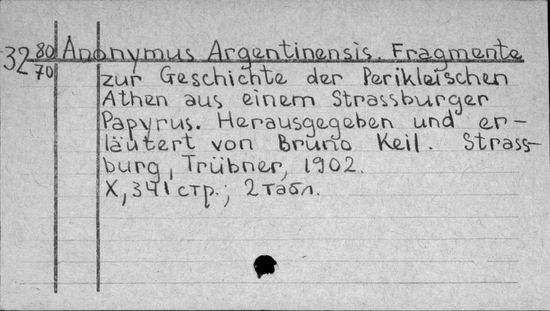 32 80/70 Anonymus Argentinensis. Fragmente
zur Geschichte der Perikleischen
Athen aus einem Strassburger
Papyrus. Herausgegeben und er-
läutert von Bruno Keil. Strass-
burg, Trübner, 1902.
X, 341 стр.; 2 табл.